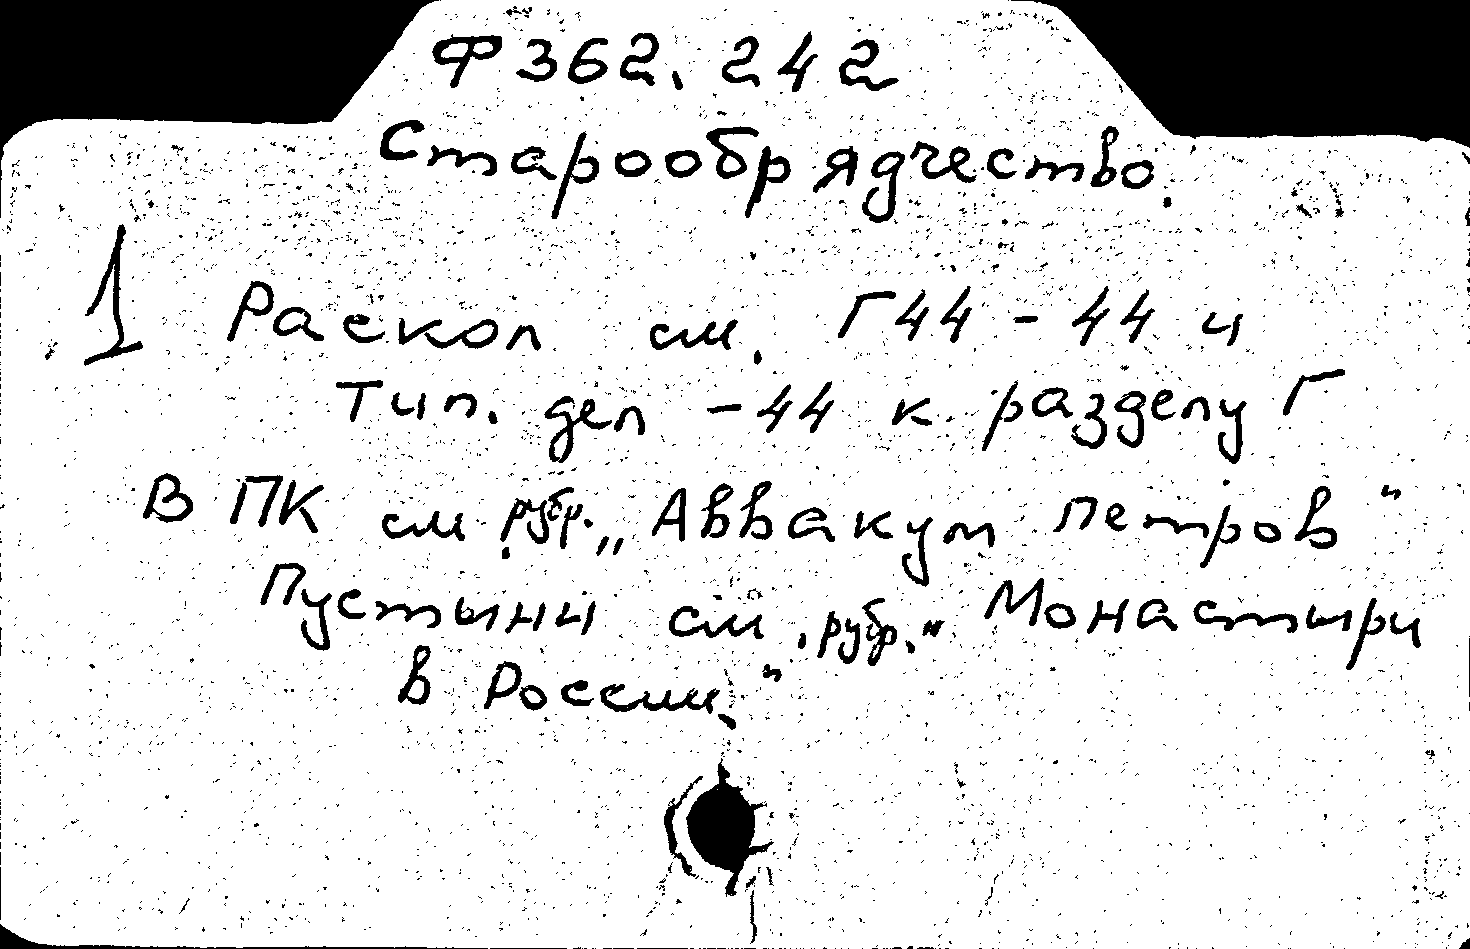 Ф362.242
Старообрядчество.
1 Раскол см. Г44-44 и
Тип. дел -44 к разделу Г
В ПК см. рубр. „Аввакум Петров"
Пустыни см. рубр. "Монастыри
в России."